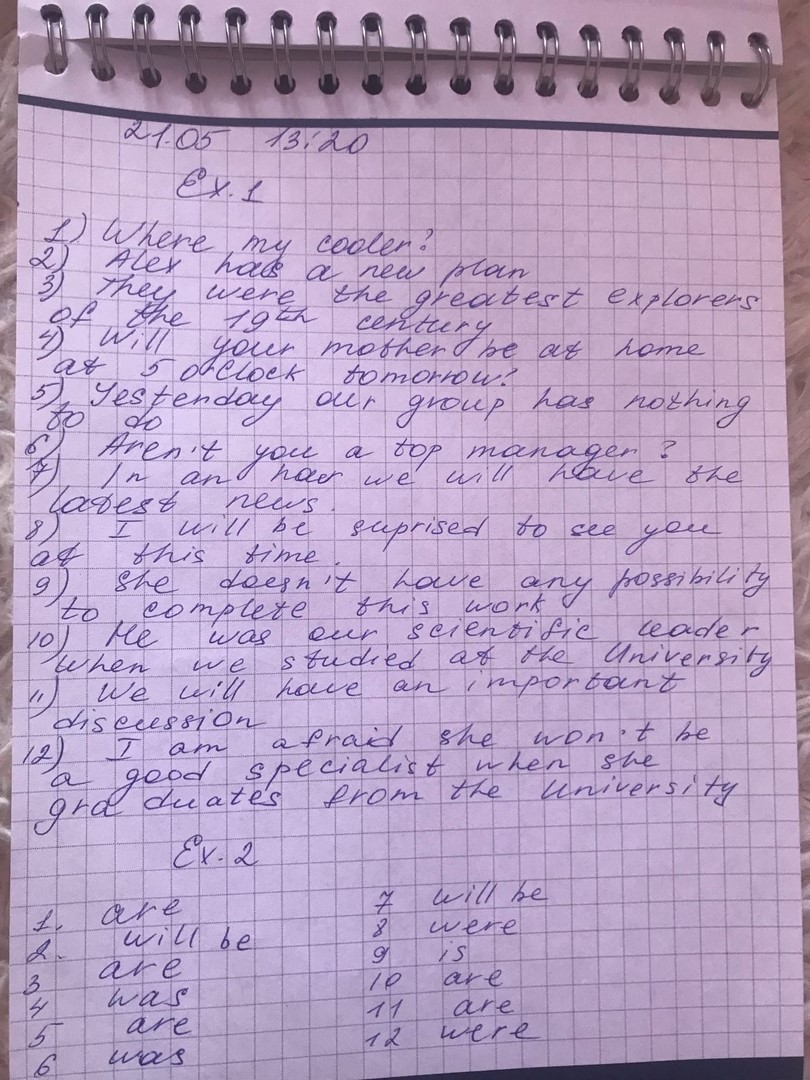 21.05 13:20
Ex.1
1) Where my cooler?
2) Alex has a new plan
3) They were the greatest explorers
of the 19th century
4) Will your mother be at home
at 5 o'clock tomorrow?
5) Yesterday our group has nothing
to do
6) Aren't you a top manager?
7) In an hour we will have the
latest news.
8) I will be suprised to see you
at this time.
9) she doesn't have any possibility
to complete this work
10) He was our scientific leader
when we studied at the University
11) We will have an important
discussion
12) I am afraid she won't be
a good specialist when she
graduates from the University
Ex.2
1. are
2. will be
3 are
4 was
5 are
6 was
7 will be
8 were
9 is
10 are
11 are
12 were